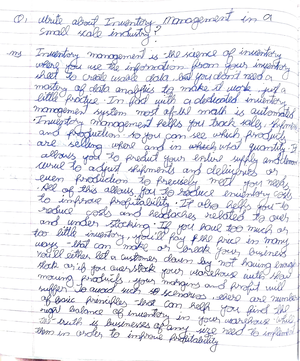 Q. Write about Inventory Management in a
small scale industry?
Ans Inventory management is the science of inventory
where you use the information from your inventory
sheet to create usable data. but you don't need a
mastery of data analytics to make it work just a
little practise. In fact with a dedicated inventory
management system most of the math is automated
Inventory management helps you track sales, systems
and production so you can see which products
are selling where and in which what quantity. It
allows you to predict your entire supply and
curve to adjust shipments and deliveries or
even production to precisely meet your needs
All of this allows you to reduce inventory costs
to improve profitability. It also helps you to
reduce costs and headaches related to over
and under stocking. If you have too much or
too little inventory, you'll pay the price in many
ways - that can make or break your business
You'll either let a customer down by not having enough
stock or if you over stock your warehouse with slow
moving products your margins and profit will
suffer. To avoid such scenarios there are number
of basic principles that can help you find the
right balance of inventory in your warehouse
truth is businesses of any size need to implement
them in order to improve profitability